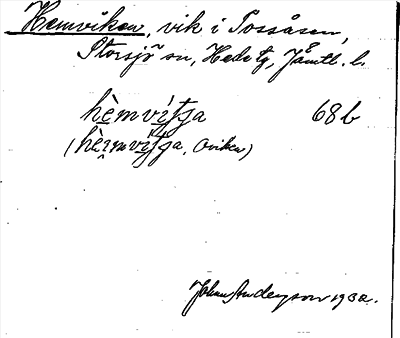 Hemviken, vik i Tossåsen,
Storsjö sn, Hede tg, Jämtl. l.
hèmvítʃa 68b
(hèi̯mvítʃa, Oviken)
Johan Anderson 1932.